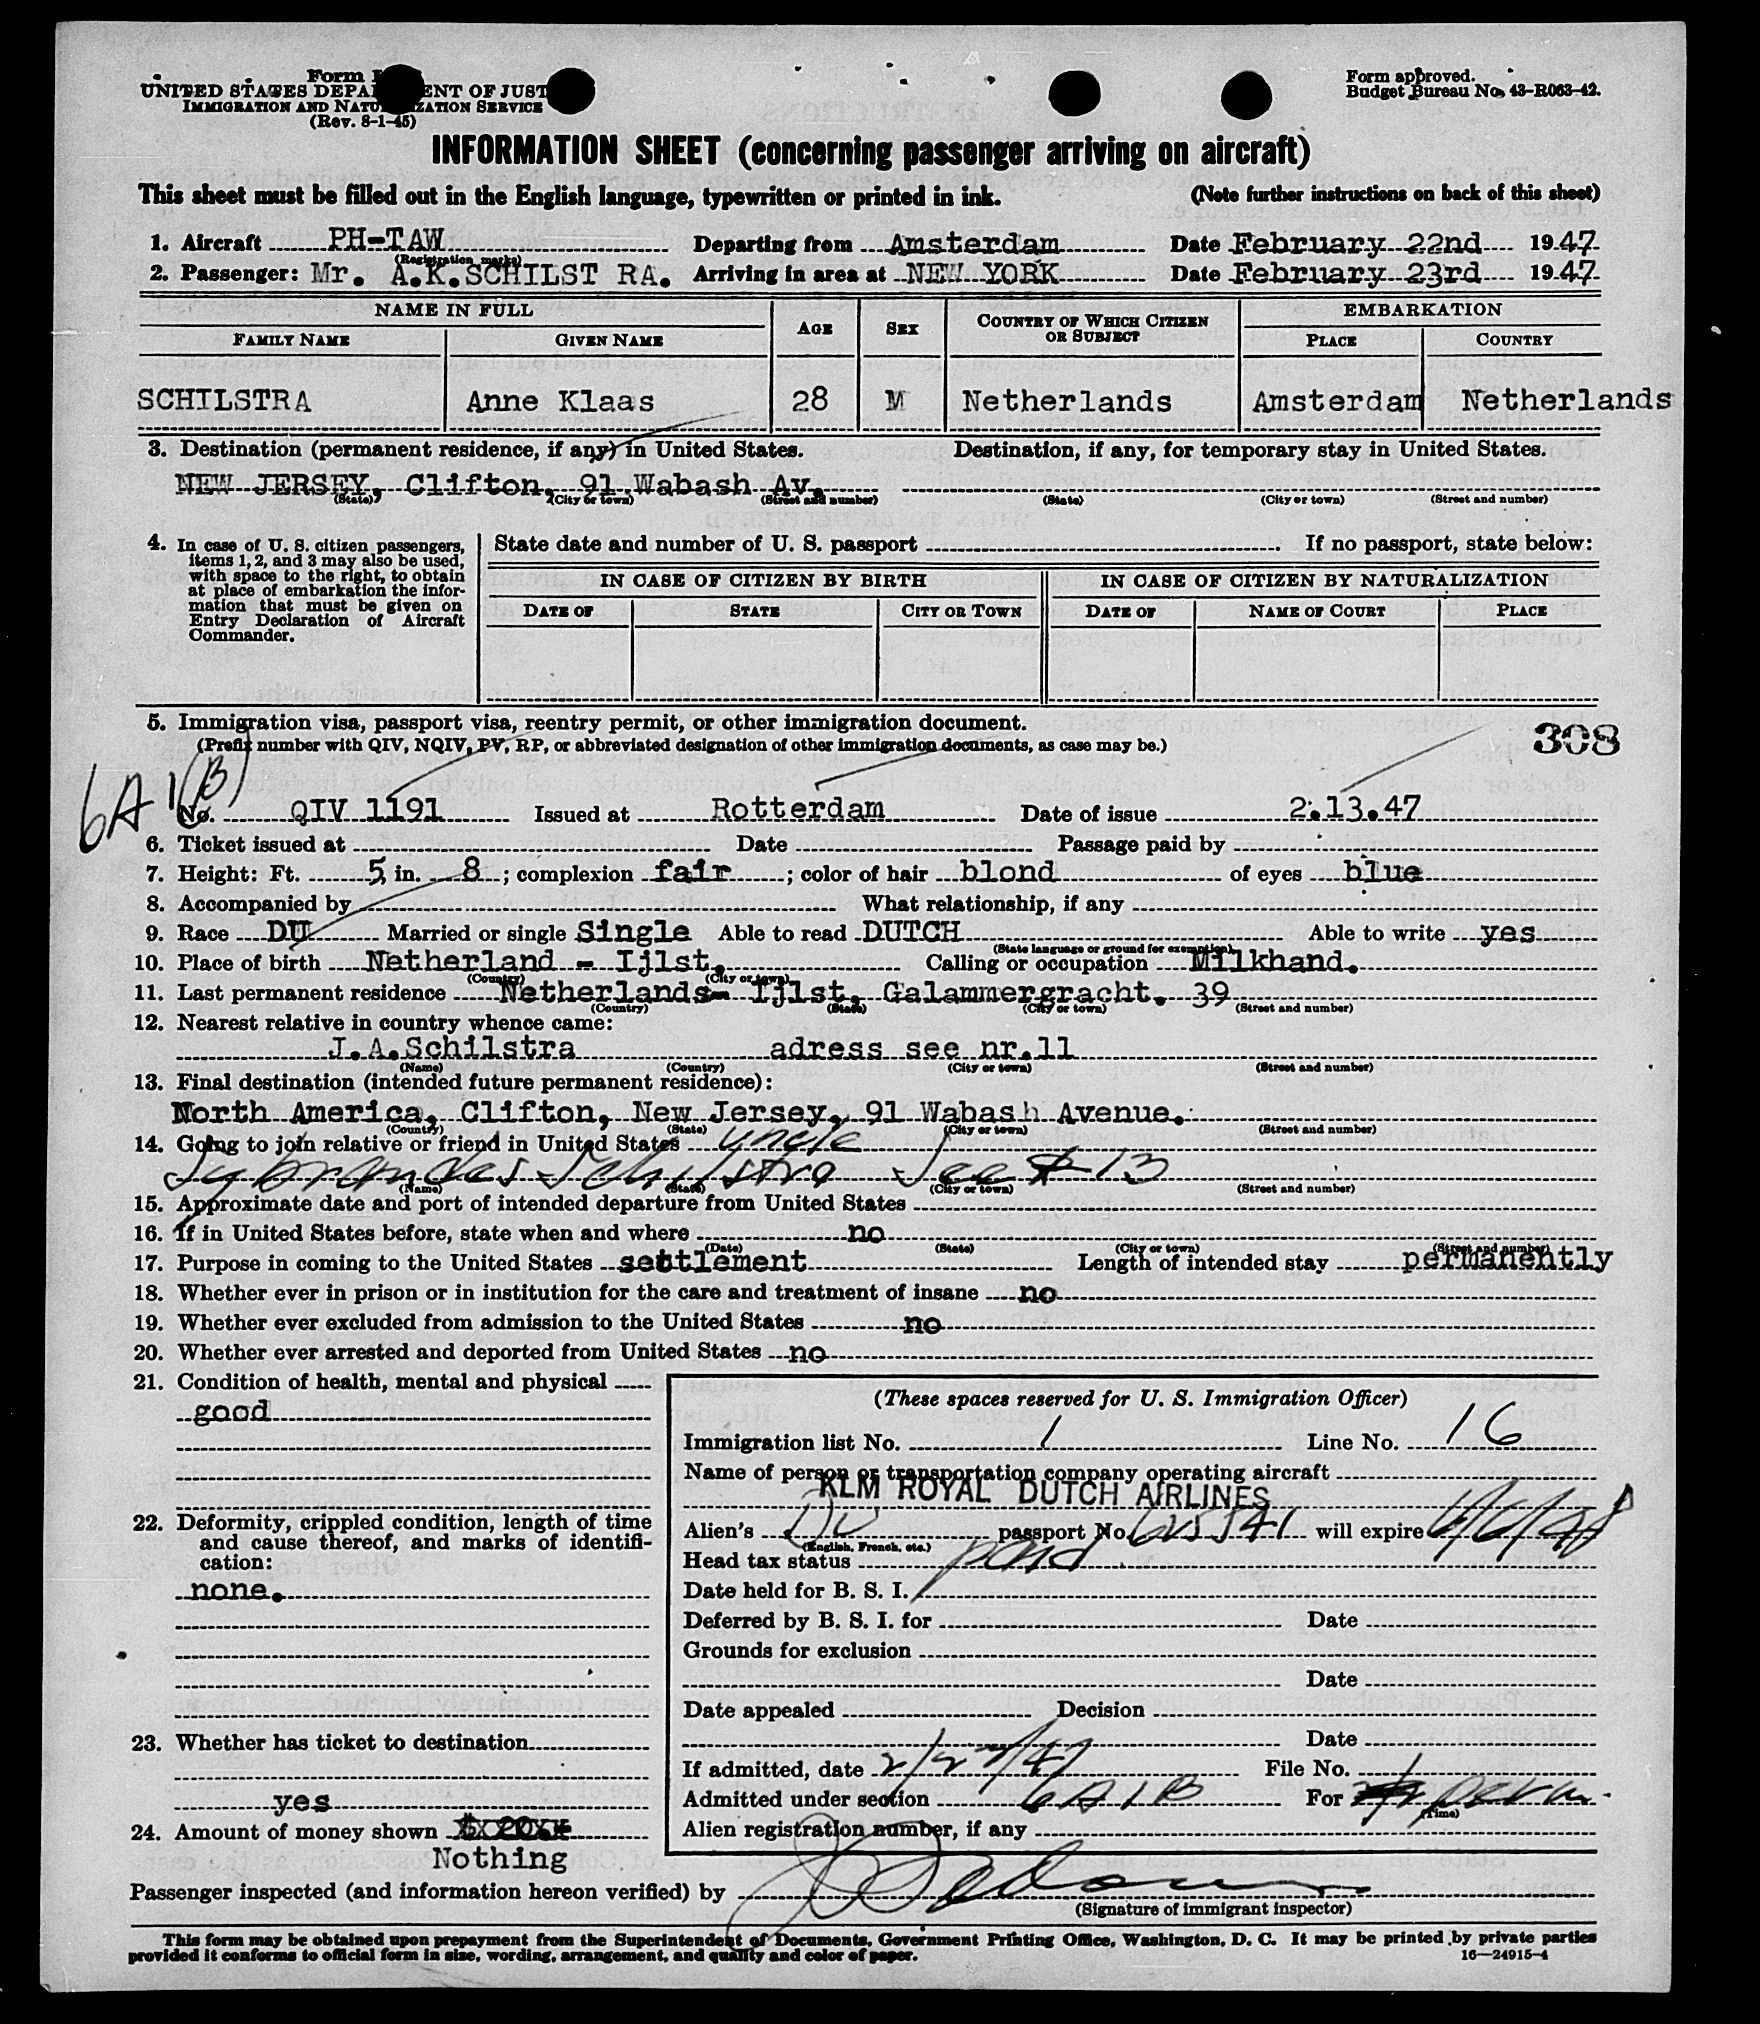 Form I
UNITED STATES DEPA ENT OF JUST
IMMIGRATION AND NATU ZATION SERVICE
(Rev. 8-1-45)
Form approved.
Budget Bureau No. 43-R063-42.
INFORMATION SHEET (concerning passenger arriving on aircraft)
This sheet must be filled out in the English language, typewritten or printed in ink. (Note further instructions on back of this sheet)
1. Aircraft PH-TAW Departing from Amsterdam Date February 22nd 1947
(Registration marks)
2. Passenger: Mr. A.K.SCHILST RA. Arriving in area at NEW YORK Date February 23rd 1947
NAME IN FULL AGE SEX COUNTRY OF WHICH CITIZEN OR SUBJECT EMBARKATION
FAMILY NAME GIVEN NAME PLACE COUNTRY
SCHILSTRA Anne Klaas 28 M Netherlands Amsterdam Netherlands
3. Destination (permanent residence, if any) in United States. Destination, if any, for temporary stay in United States.
NEW JERSEY, Clifton, 91 Wabash Av.
(State) (City or town) (Street and number) (State) (City or town) (Street and number)
4. In case of U. S. citizen passengers, items 1, 2, and 3 may also be used, with space to the right, to obtain at place of embarkation the information that must be given on Entry Declaration of Aircraft Commander.
State date and number of U. S. passport If no passport, state below:
IN CASE OF CITIZEN BY BIRTH IN CASE OF CITIZEN BY NATURALIZATION
DATE OF STATE CITY OR TOWN DATE OF NAME OF COURT PLACE
5. Immigration visa, passport visa, reentry permit, or other immigration document.
(Prefix number with QIV, NQIV, PV, RP, or abbreviated designation of other immigration documents, as case may be.)
308
6A1(B)
No. QIV 1191 Issued at Rotterdam Date of issue 2.13.47
6. Ticket issued at Date Passage paid by
7. Height: Ft. 5, in. 8 ; complexion fair ; color of hair blond of eyes blue
8. Accompanied by What relationship, if any
9. Race DU Married or single Single Able to read DUTCH Able to write yes
(State language or ground for exemption)
10. Place of birth Netherland - Ijlst. Calling or occupation Milkhand.
(Country) (City or town)
11. Last permanent residence Netherlands- Ijlst, Galammergracht. 39
(Country) (State) (City or town) (Street and number)
12. Nearest relative in country whence came:
J.A.Schilstra adress see nr.11
(Name) (Country) (City or town) (Street and number)
13. Final destination (intended future permanent residence):
North America, Clifton, New Jersey, 91 Wabash Avenue.
(Country) (State) (City or town) (Street and number)
14. Going to join relative or friend in United States uncle
Sybrandes Schilstra See # 13
(Name) (State) (City or town) (Street and number)
15. Approximate date and port of intended departure from United States
16. If in United States before, state when and where no
(Date) (State) (City or town) (Street and number)
17. Purpose in coming to the United States settlement Length of intended stay permanently
18. Whether ever in prison or in institution for the care and treatment of insane no
19. Whether ever excluded from admission to the United States no
20. Whether ever arrested and deported from United States no
21. Condition of health, mental and physical
good
22. Deformity, crippled condition, length of time and cause thereof, and marks of identification:
none.
23. Whether has ticket to destination
yes
24. Amount of money shown $ 20.
Nothing
(These spaces reserved for U. S. Immigration Officer)
Immigration list No. 1 Line No. 16
Name of person or transportation company operating aircraft
KLM ROYAL DUTCH AIRLINES
Alien's Du passport No. 625541 will expire 6/6/48
(English, French, etc.)
Head tax status paid
Date held for B. S. I.
Deferred by B. S. I. for Date
Grounds for exclusion
Date
Date appealed Decision
Date
If admitted, date 2/23/47 File No.
Admitted under section 6A1B For perm.
(Time)
Alien registration number, if any
Passenger inspected (and information hereon verified) by
(Signature of immigrant inspector)
This form may be obtained upon prepayment from the Superintendent of Documents, Government Printing Office, Washington, D. C. It may be printed by private parties
provided it conforms to official form in size, wording, arrangement, and quality and color of paper. 16—24915-4